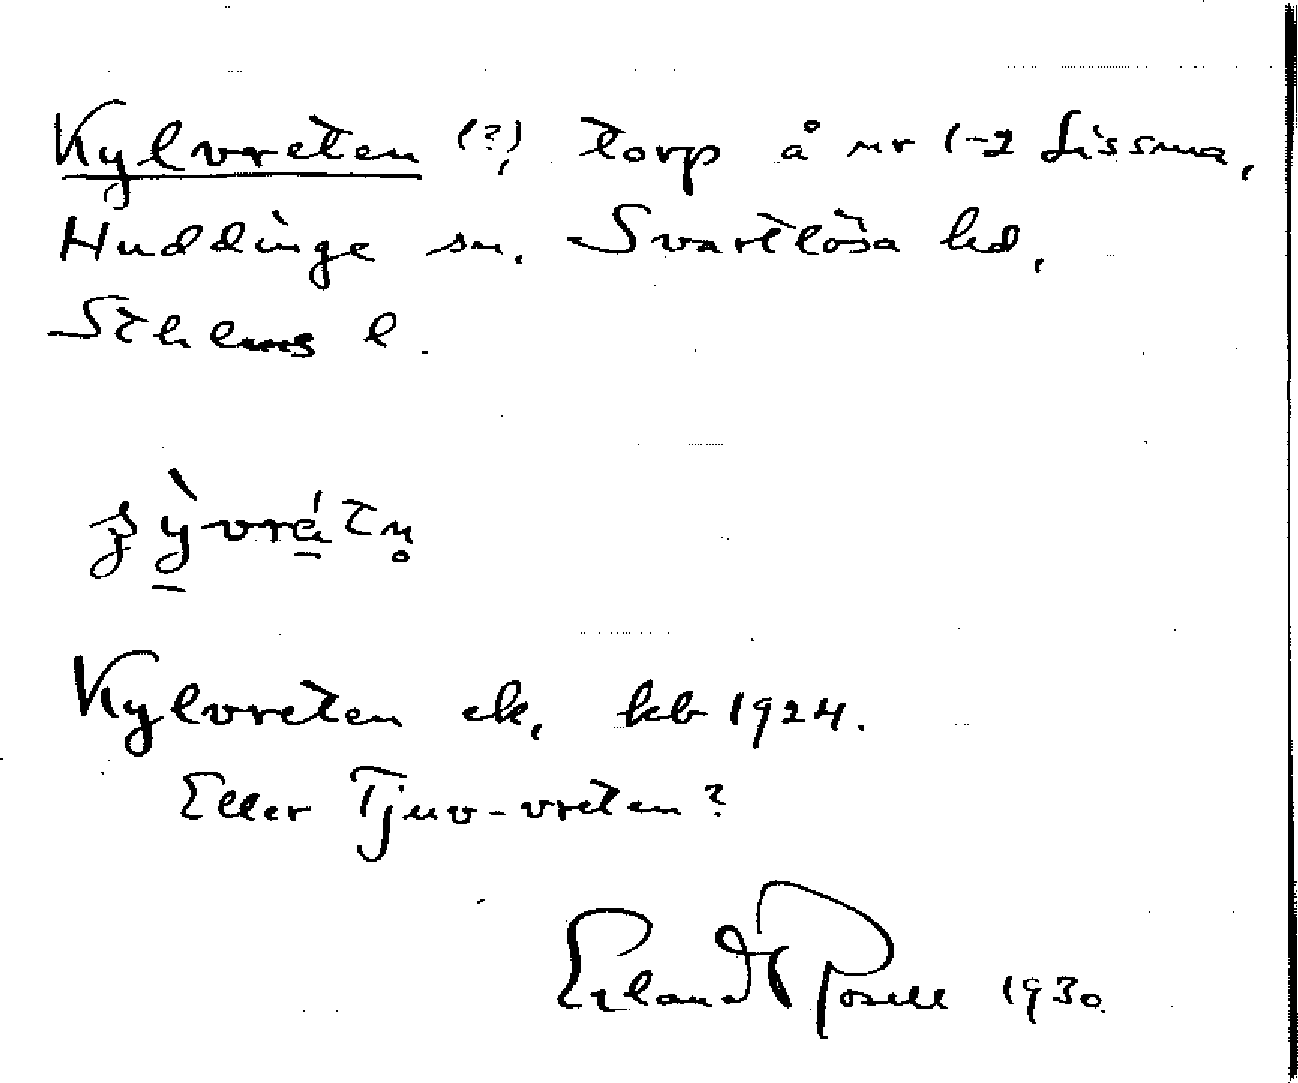 Kylvreten (?), torp å nr 1-2 Lissma,
Huddinge sn. Svartlösa hd,
Sthlms l.
Kylvreten ek, kb 1924.
Eller Tjuv-vreten?
Erland Rosell 1930.